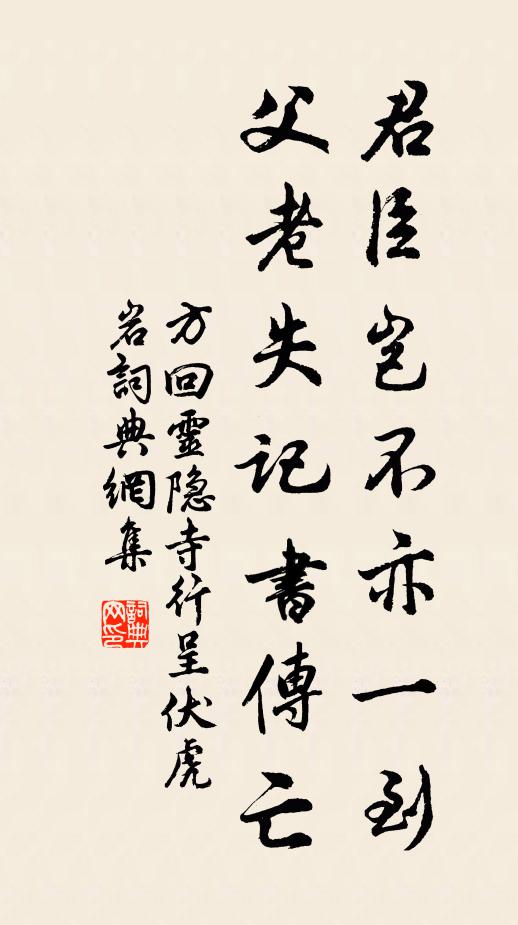 君臣岂不亦一到
父老失记書傳亡
方回靈隐寺行呈伏虎
岩詞典網集
詞典网印